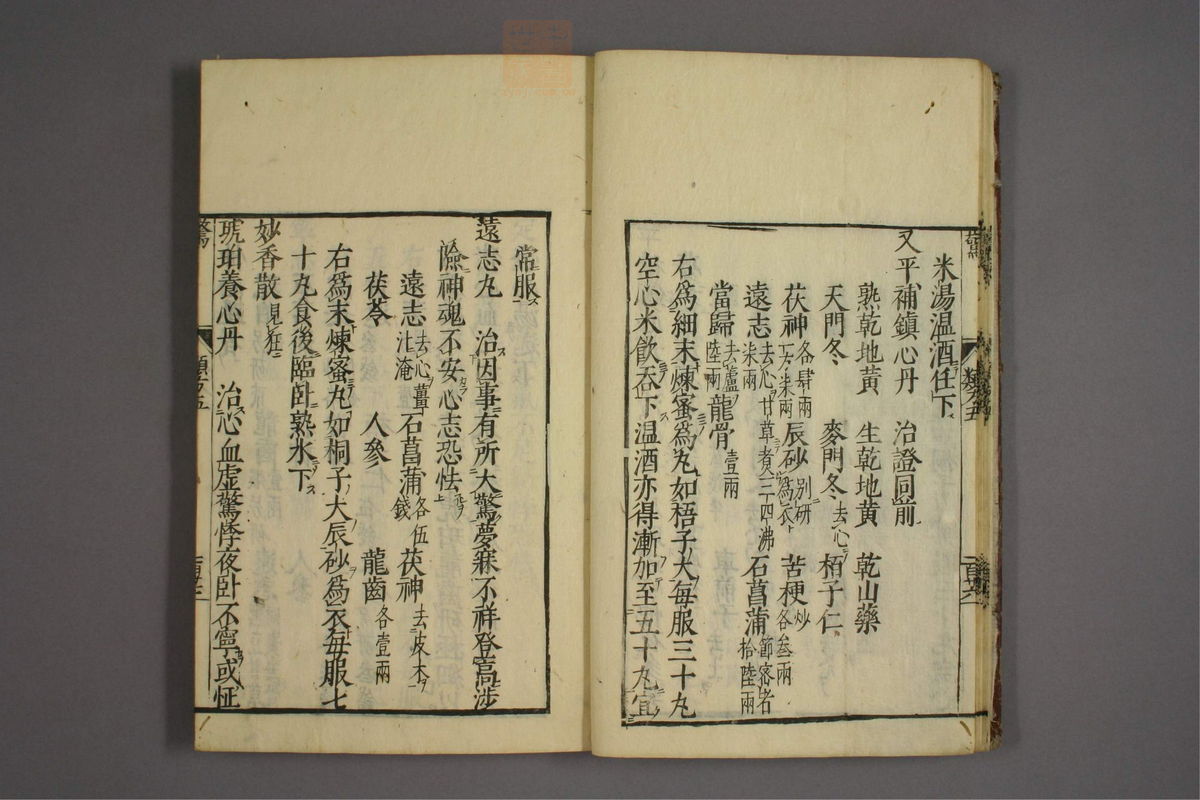 米湯溫酒任下
又平補鎮心丹　治證同前
熟乾地黃　生乾地黃　乾山藥
天門冬　麥門冬去心　栢子仁
茯神各肆兩　辰砂別研爲衣　苦梗炒各叄兩
遠志去心甘草煑三四沸柒兩　石菖蒲節密者拾陸兩
當歸去蘆陸兩　龍骨壹兩
右爲細末煉蜜爲丸如梧子大每服三十丸
空心米飲吞下溫酒亦得漸加至五十丸宜
常服
遠志丸　治因事有所大驚夢寐不祥登高涉
險神魂不安心志恐怯
遠志去心薑汁淹　石菖蒲各伍錢　茯神去皮木
茯苓　人參　龍齒各壹兩
右爲末煉蜜丸如桐子大辰砂爲衣每服七
十丸食後臨卧熟水下
妙香散見狂
琥珀養心丹　治心血虛驚悸夜卧不寧或怔